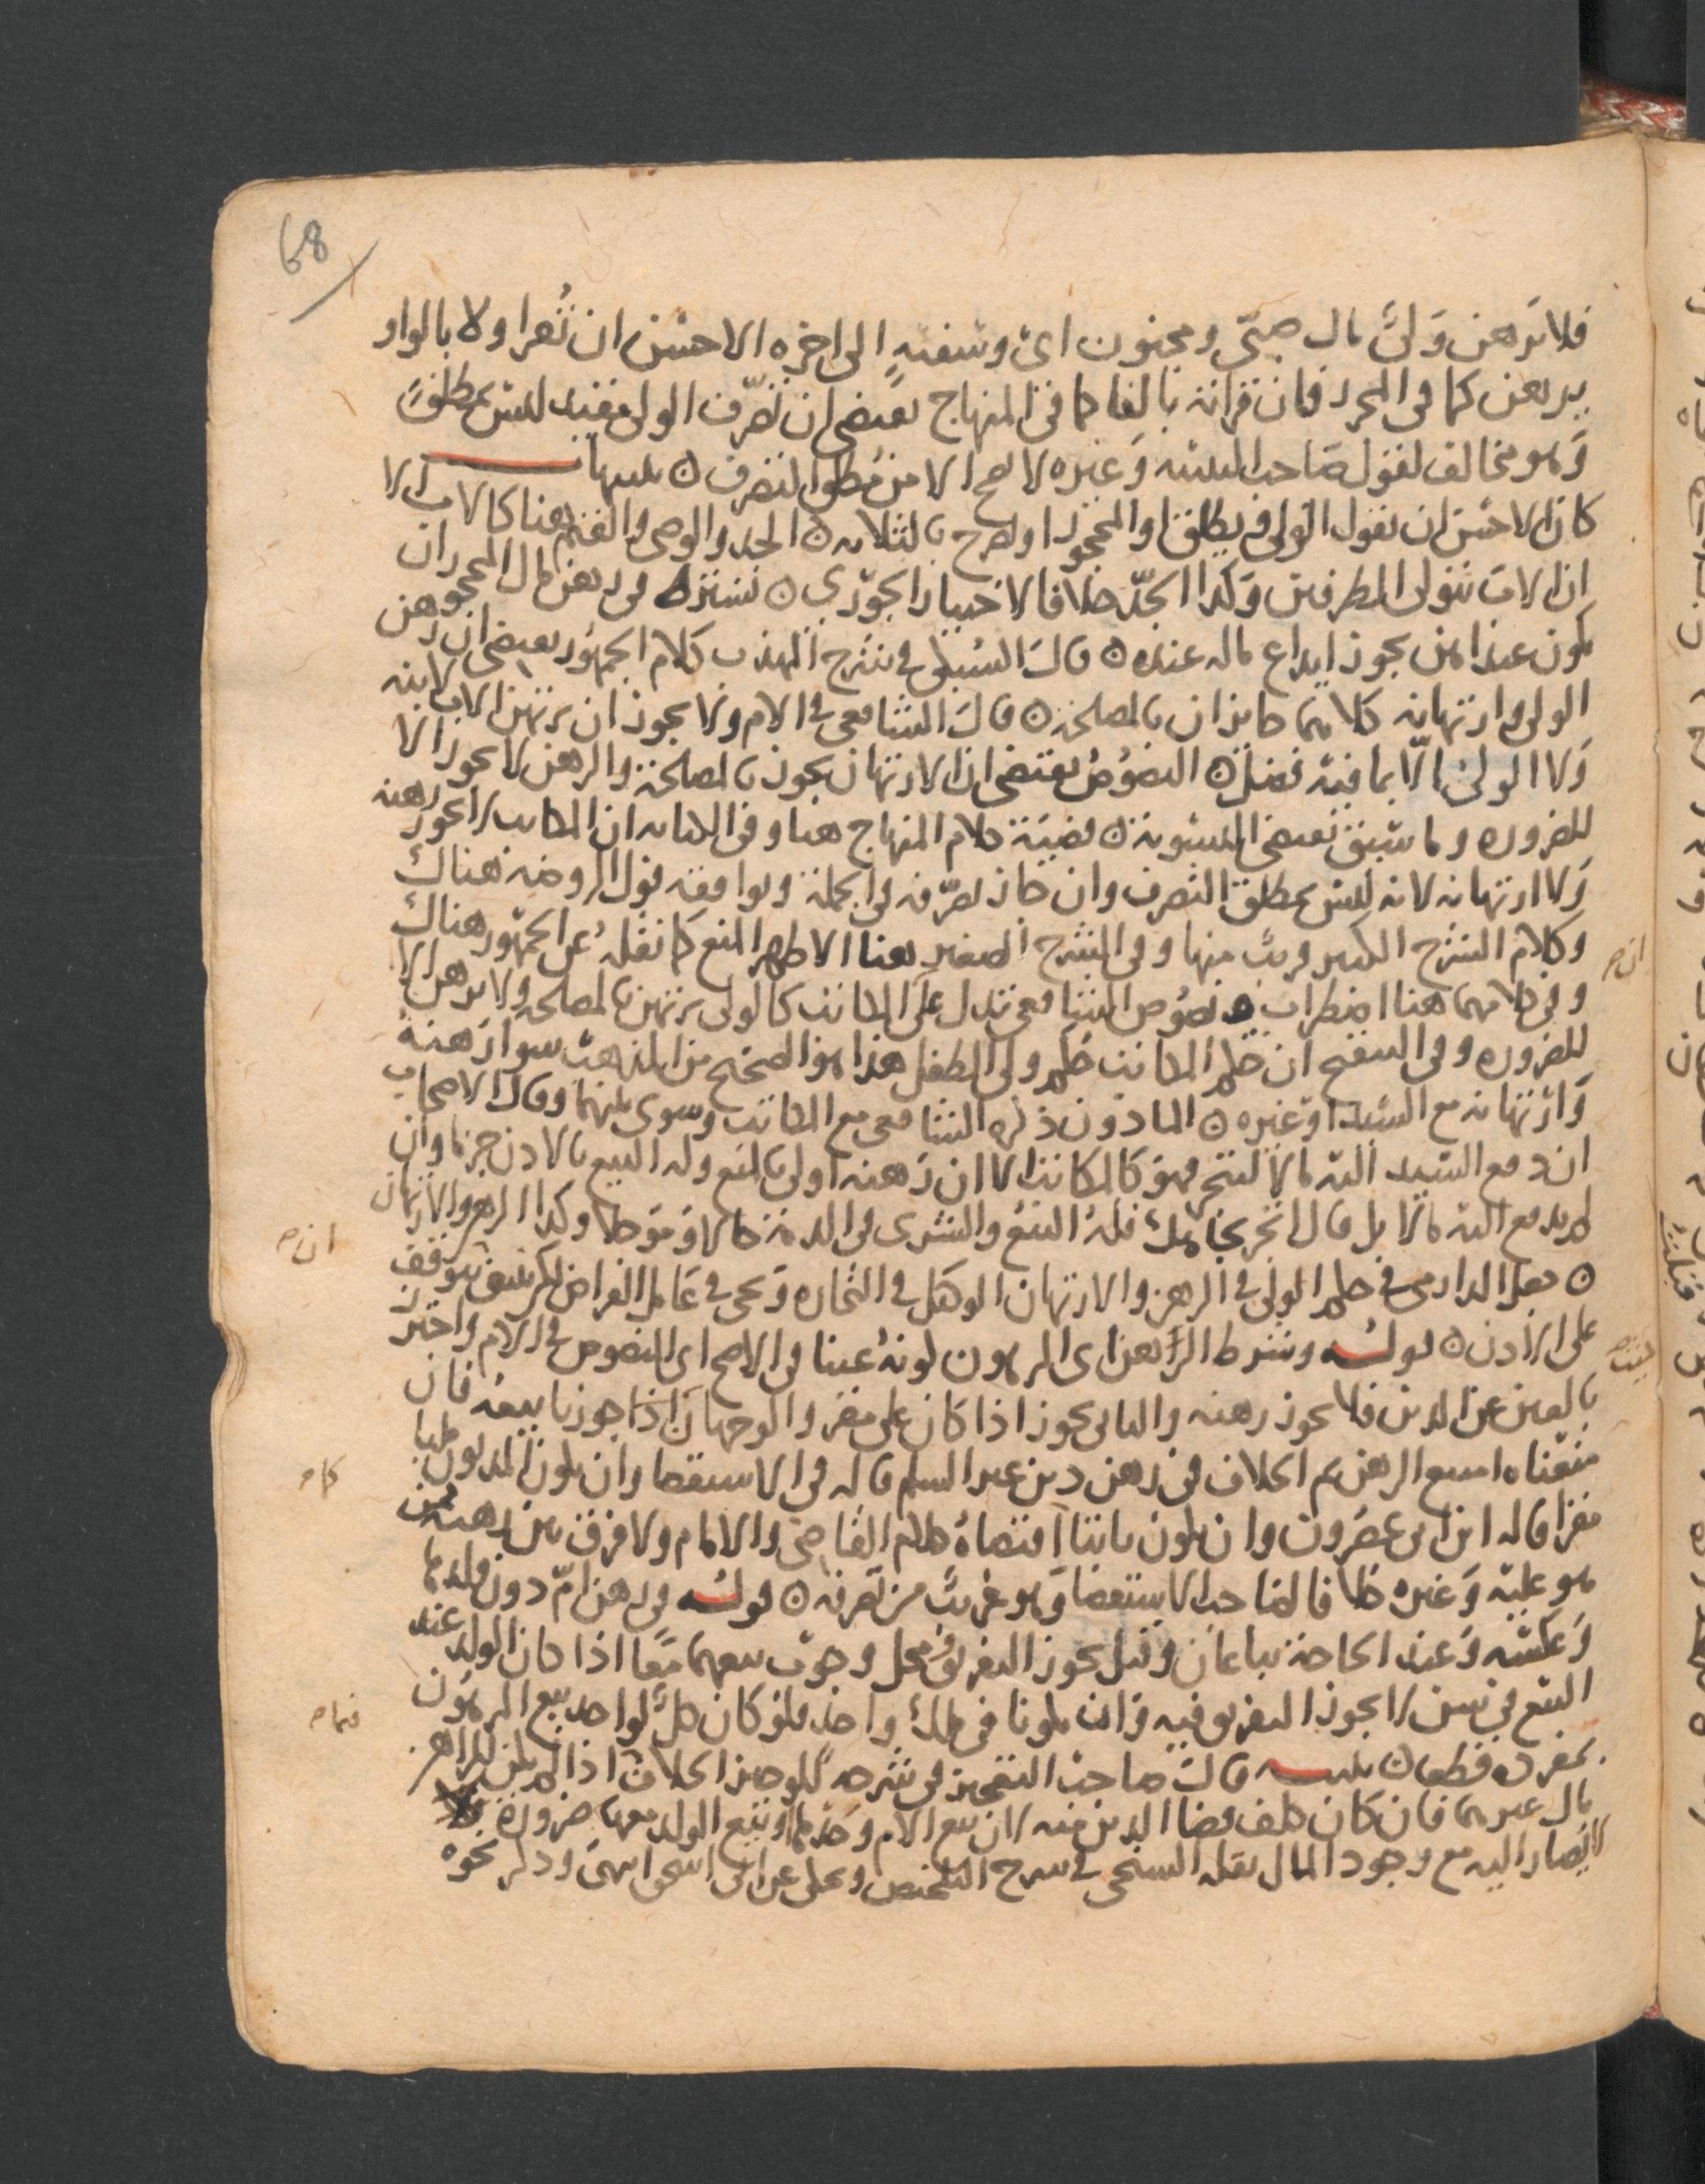 68
فلا يرهن ولي مال صبي ومجنون اي وسفيه الى اخره الاحسن ان تقرا ولا بالواو
يرهن كما في المحرر فان قرانه بالفا كما في المنهاج يقتضي ان تصرف الولي مقيد ليس بمطلق
وهو مخالف لقول صاحب التنبيه وغيره لا يصح الا من مطلق التصرف ن تنبيهات
كان الاحسن ان يقول الولي ويطلق او المحجور او يصرح بالثلاثة ن الجد والوصي والقيم هنا كالاب الا
ان الاب يتولى الطرفين وكذا الجد خلافا لاختيار الجوري ن يشترط في رهن مال المحجور ان
يكون عند امين يجوز ايداع ماله عنده ن قال السبكي في شرح المهذب كلام الجمهور يقتضي ان رهن
الولي وارتهانه كلاهما جايزان بالمصلحة ن قال الشافعي في الام ولا يجوز ان يرتهن الاب لابنه
ولا الولي الا بما فيه فضل ن النصوص يقتضي ان الارتهان يجوز بالمصلحة والرهن لا يجوز الا
للضرورة وما سبق يقتضي التسوية ن قضية كلام المنهاج هنا وفي الكتابة ان المكاتب لا يجوز رهنه
ولا ارتهانه لانه ليس بمطلق التصرف وان جاز تصرفه في الجملة ويوافقه قول الروضة هناك
وكلام الشرح الكبير قريب منها وفي الشرح الصغير هنا الاظهر المنع كما نقله عن الجمهور هناك
وفي كلامهما هنا اضطراب ونصوص الشافعي تدل على ان المكاتب كالولي يرتهن بالمصلحة ولا يرهن الا
للضرورة وفي التنقيح ان حكم المكاتب حكم ولي الطفل هذا هو الصحيح من المذهب سوا رهنه
وارتهانه مع السيد او غيره ن الماذون ذكره الشافعي مع المكاتب وسوى بينهما وقال الاصحاب
ان دفع السيد اليه مالا ليتجر فهو كالمكاتب الا ان رهنه اولى بالمنع وله البيع بالاذن جزما وان
لم يدفع اليه مالا بل قال اتجر بجاهك فله البيع والشرى في الذمة حالا وموجلا وكذا الرهن والارتهان
ن جعل الدارمي في حكم الولي في الرهن والارتهان الوكيل في التجارة ويجي في عامل القراض لكن ينبغي توقف
على الاذن ن قوله وشرط الرهن اي المرهون كونه عينا في الاصح اي المنصوص في الام واحترز
بالعين عن الدين فلا يجوز رهنه والثاني يجوز اذا كان على مقر والوجهان اذا جوزنا بيعه فان
منعناه امتنع الرهن ثم الخلاف في رهن دين غير السلم قاله في الاستقصا وان يكون المديون مليا
مقرا قاله ابن ابي عصرون وان يكون ثابتا اقتضاه كلام القاضي والامام ولا فرق بين رهنه ممن
هو عليه وغيره خلافا لصاحب الاستقصا وهو غريب من تصرفه ن قوله في رهن ام دون ولدها
وعكسه وعند الحاجة يباعان وقيل يجوز التفريق محل وجوب بيعهما معا اذا كان الولد عند
البيع في سن لا يجوز التفريق فيه وان يكونا في ملك واحد فلو كان كل لواحد بيع المرهون
بمفرده قطعا ن تنبيه قال صاحب التعجيز في شرحه للوجيز الخلاف اذا لم يكن للراهن
مال غيرهما فان كان كلف قضا الدين منه لان بيع الام وحدها او بيع الولد معها ضرورة فلا
لا يصار اليه مع وجود المال نقله السنجي في شرح التلخيص وحكى عن ابي اسحق انتهى وذكر نحوه
ان صح
ان صح
كما صح
فيما صح